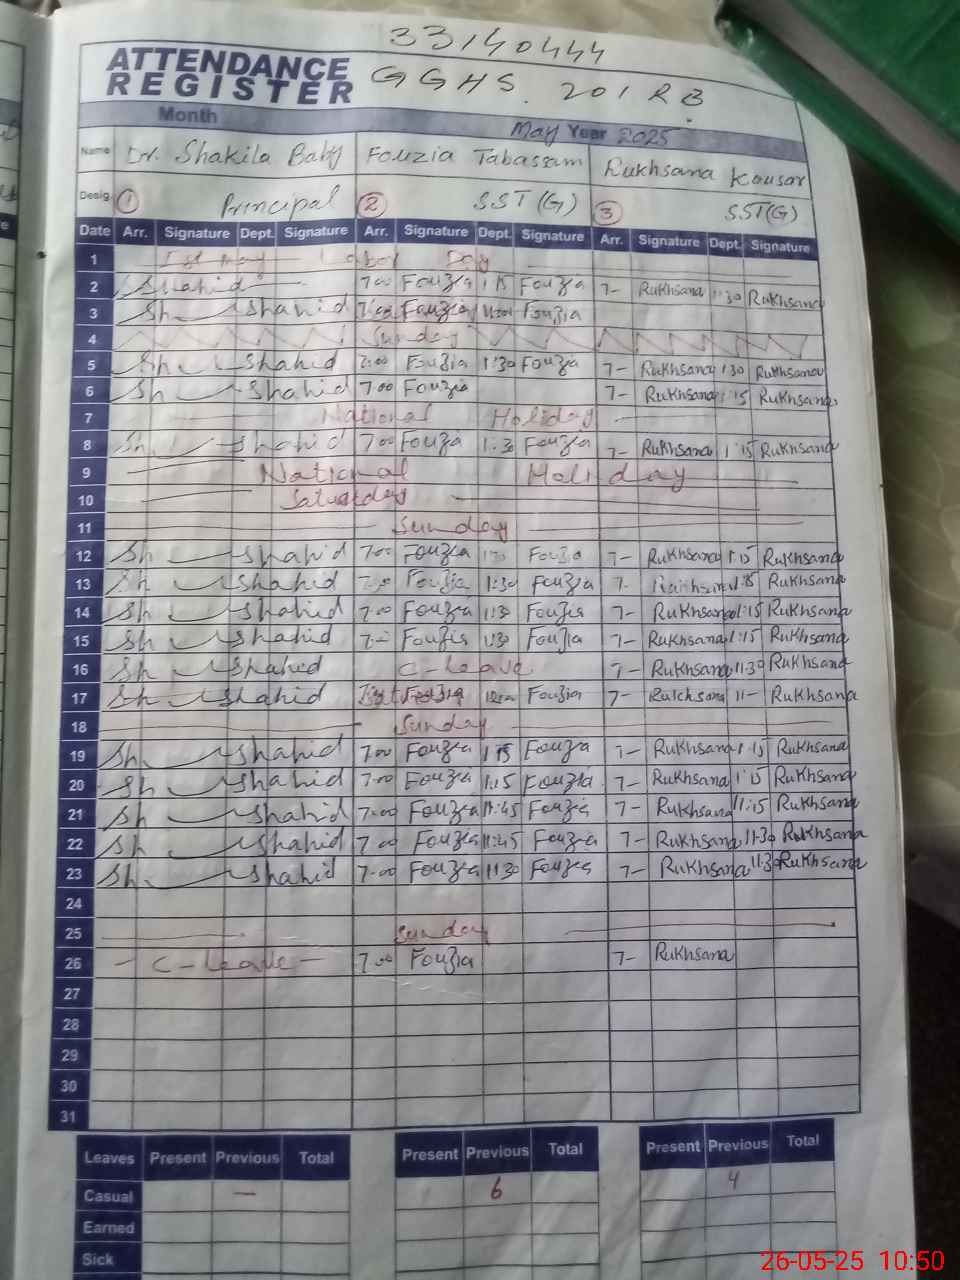 33140444
ATTENDANCE REGISTER
GGHS. 201 RB
Month May Year 2025
Name Dr. Shakila Baby Fouzia Tabassam Rukhsana Kausar
Desig. 1 Principal 2 SST (G) 3 SST(G)
Date Arr. Signature Dept. Signature Arr. Signature Dept. Signature Arr. Signature Dept. Signature
1 1st may Labor Day
2 Shahid 7.00 Fouzia 1:15 Fouzia 7- Rukhsana 1:30 Rukhsana
3 Sh Shahid 7:00 Fouzia Fouzia
4 Sunday
5 Sh Shahid 7:00 Fouzia 1:30 Fouzia 7- Rukhsana 1:30 Rukhsana
6 Sh Shahid 7.00 Fouzia 7- Rukhsana 1:15 Rukhsana
7 National Holiday
8 Sh Shahid 7.00 Fouzia 1:30 Fouzia 7- Rukhsana 1:15 Rukhsana
9 National Holiday
10 Saturday
11 Sunday
12 Sh Shahid 7.00 Fouzia Fouzia 7- Rukhsana 1:15 Rukhsana
13 Sh Shahid 7.00 Fouzia 1:30 Fouzia 7- Rukhsana 1:15 Rukhsana
14 Sh Shahid 7.00 Fouzia 1:30 Fouzia 7- Rukhsana 1:15 Rukhsana
15 Sh Shahid 7.00 Fouzia 1:30 Fouzia 7- Rukhsana 1:15 Rukhsana
16 Sh Shahid C-leave 7- Rukhsana 11:30 Rukhsana
17 Sh Shahid Fouzia 7- Rukhsana 11- Rukhsana
18 Sunday
19 Sh Shahid 7.00 Fouzia 1:15 Fouzia 7- Rukhsana 1:15 Rukhsana
20 Sh Shahid 7.00 Fouzia 1:15 Fouzia 7- Rukhsana 1:15 Rukhsana
21 Sh Shahid 7.00 Fouzia 11:45 Fouzia 7- Rukhsana 11:15 Rukhsana
22 Sh Shahid 7.00 Fouzia 11:45 Fouzia 7- Rukhsana 11:30 Rukhsana
23 Sh Shahid 7.00 Fouzia 11:30 Fouzia 7- Rukhsana 11:30 Rukhsana
24
25 Sunday
26 - C-leave - 7.00 Fouzia 7- Rukhsana
27
28
29
30
31
Leaves Present Previous Total Present Previous Total Present Previous Total
Casual — 6 4
Earned
Sick
26-05-25 10:50